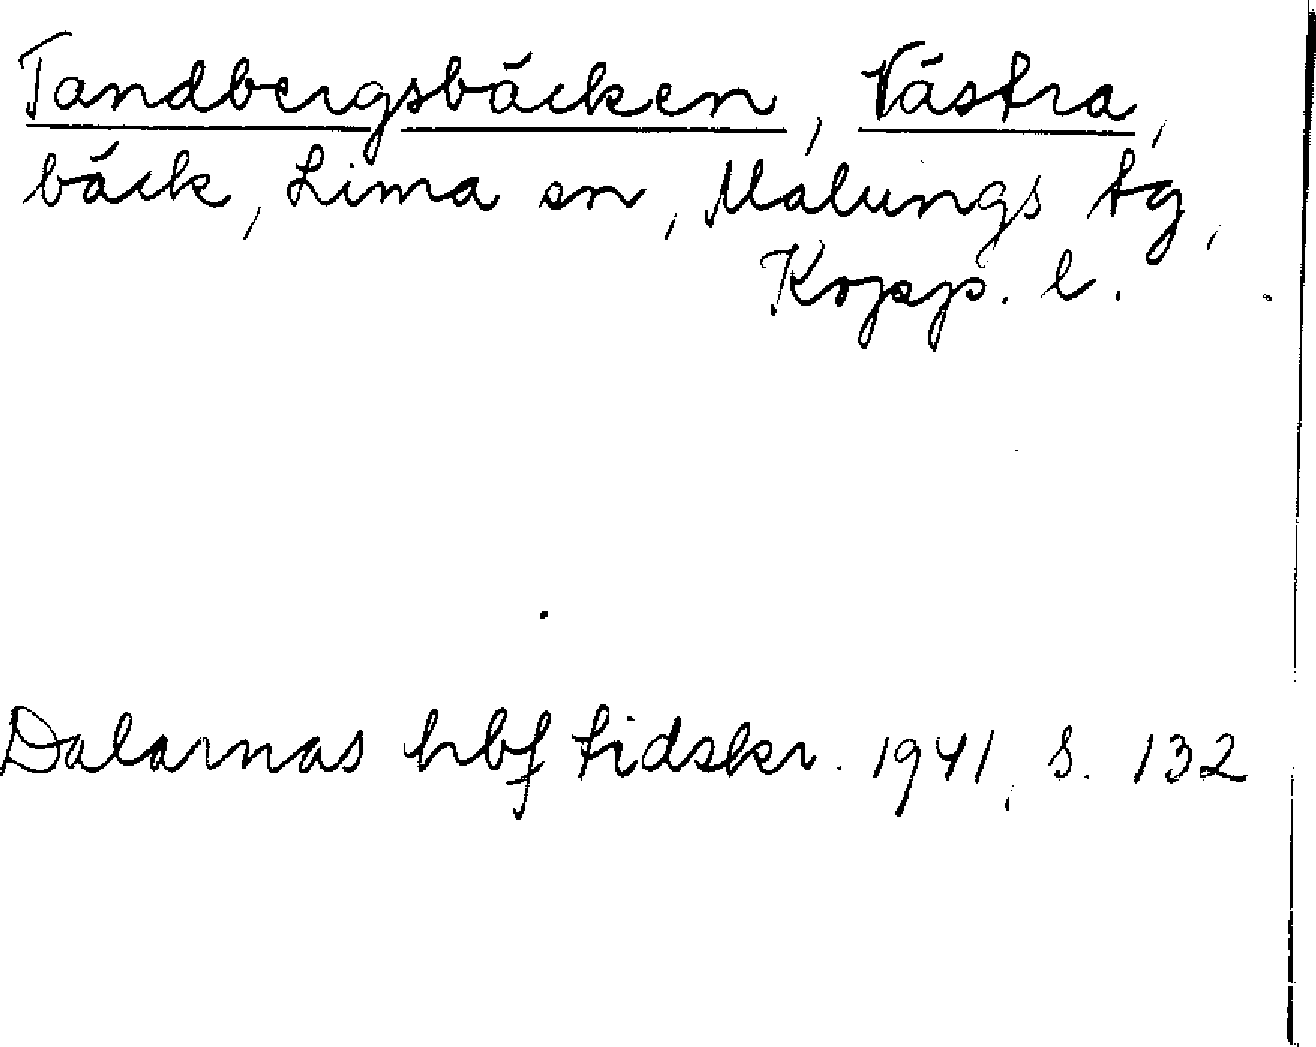 Tandbergsbäcken, Västra,
bäck, Lima sn, Malungs tg,
Kopp. l.
Dalarnas hbf tidskr. 1941, s. 132